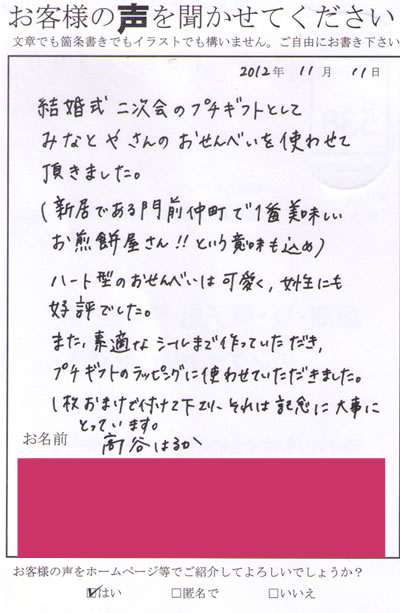 お客様の声を聞かせてください
文章でも箇条書きでもイラストでも構いません。ご自由にお書き下さい
2012年 11月 11日
結婚式二次会のプチギフトとして
みなとやさんのおせんべいを使わせて
頂きました。
(新居である門前仲町で1番美味しい
お煎餅屋さん!!という意味も込め)
ハート型のおせんべいは可愛く、女性にも
好評でした。
また、素適なシールまで作っていただき、
プチギフトのラッピングに使わせていただきました。
1枚おまけで付けて下さり、それは記念に大事に
とっています。
お名前
高谷はるか
お客様の声をホームページ等でご紹介してよろしいでしょうか?
☑はい □匿名で □いいえ